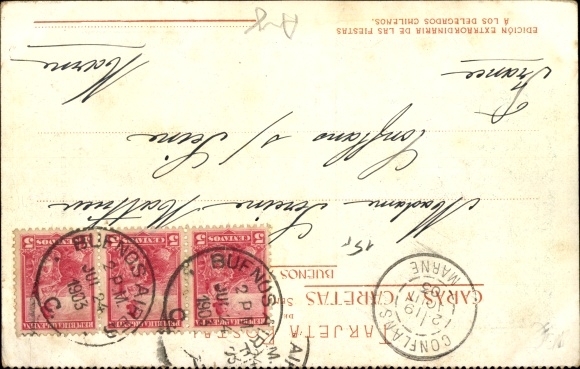 TARJETA POSTAL
DE
CARAS Y CARETAS
BUENOS
Madame
Conflans s/ Seine
Marne
France
EDICIÓN EXTRAORDINARIA DE LAS FIESTAS
Á LOS DELEGADOS CHILENOS.
Arg
15r
REPUBLICA ARGENTINA
5 CENTAVOS
5 CENTAVOS
5 CENTAVOS
BUENOS AIRES
2 P.M.
JUL 24
1903
C
BUENOS AIRES
2 P.M.
C
CONFLANS
MARNE
03